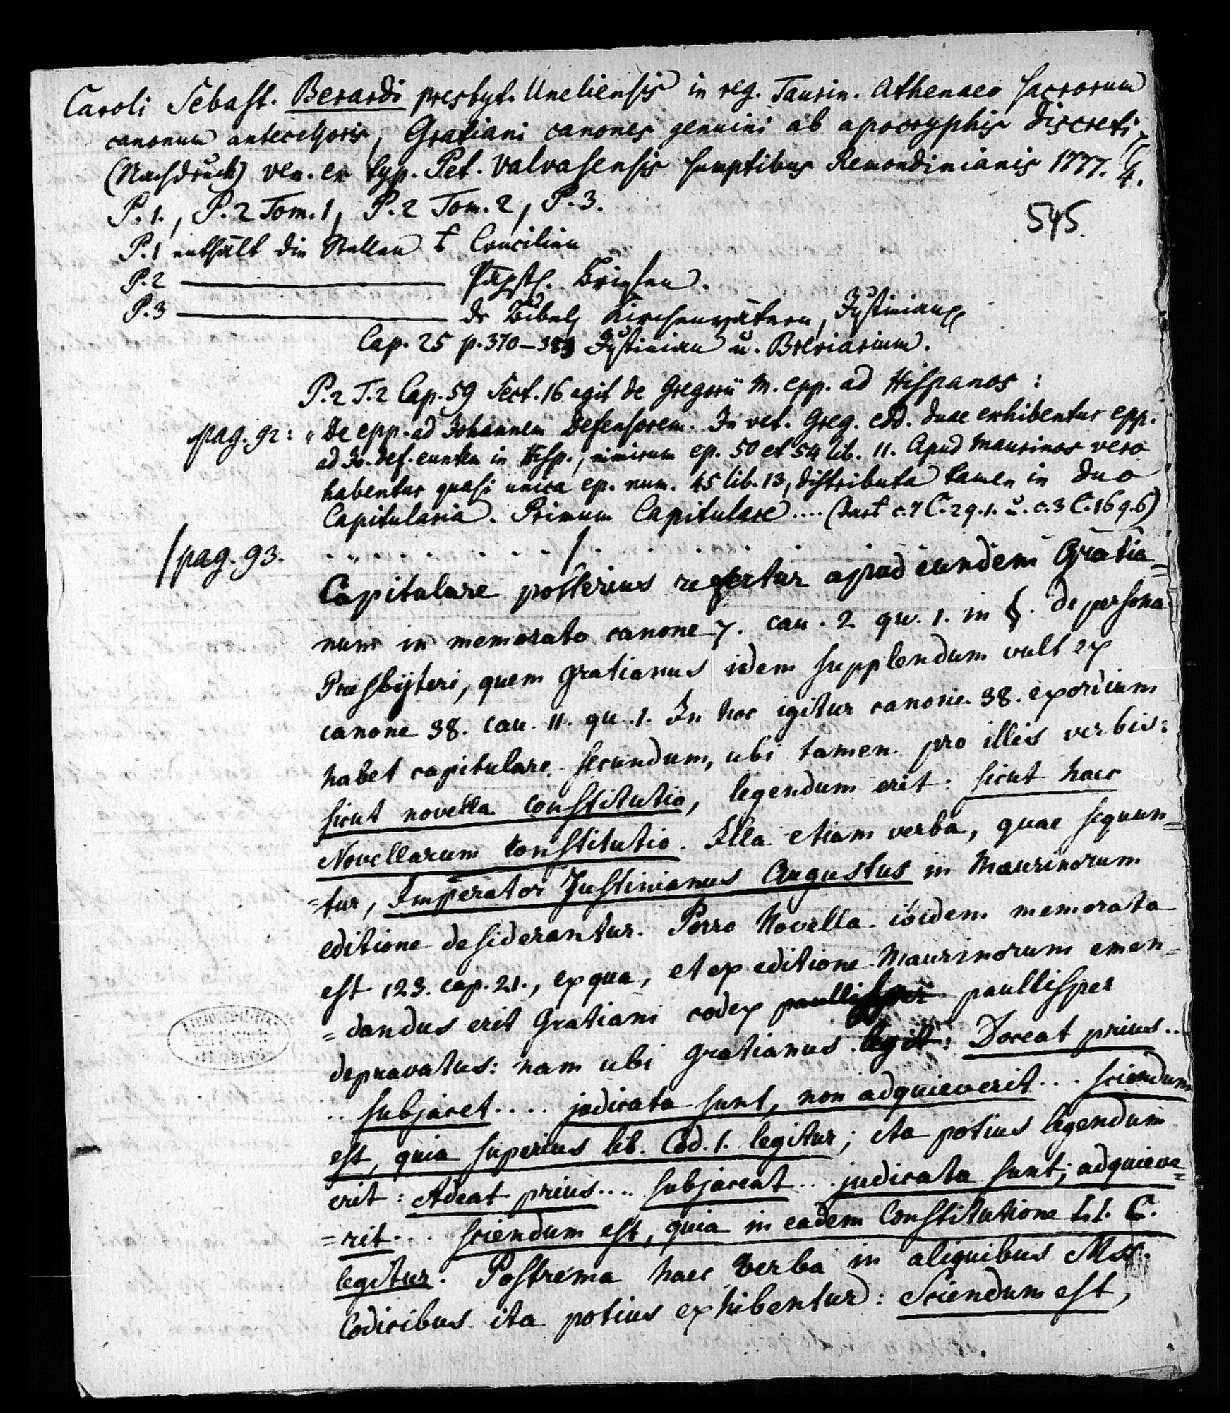 Caroli Sebast. Berardi presbyt. Uneliensis in reg. Taurin. Athenaeo sacrorum
canonum antecessoris, Gratiani canones genuini ab apocryphis discreti
(Nachdruck) Ven. ex typ. Pet. Valvasensis sumptibus Remondinianis 1777. 4.
P. 1., P. 2 Tom. 1, P. 2 Tom. 2, P. 3.
545.
P. 1 enthält die Stellen d. Concilien
P. 2 ——— Päpstl. Briefen.
P. 3 ——— der Bibel, Kirchenvätern, Justinians
Cap. 25 p. 370–389 Justinian u. Breviarium.
P. 2 T. 2 Cap. 59 Sect. 16 agit de Gregorii M. epp. ad Hispanos:
pag. 92: "De epp. ad Johannem Defensorem. In vet. Greg. edd. duae exhibentur epp.
ad Jo. def. euntem in Hisp., nimirum ep. 50 et 54 lib. 11. Apud Maurinos vero
habentur quasi unica ep. num. 45 lib. 13, distributa tamen in duo
Capitularia. Primum Capitulare .... (c. 7 C. 2 q. 1. u. c. 3 C. 16 q. 6)
/pag. 93. . . . . . . . /. . . . . . .
Capitulare posterius refertur apud eundem Gratia=
num in memorato canone 7. cau. 2 qu. 1. in §. de persona
Presbyteri, quem Gratianus idem supplendum vult ex
canone 38. cau. 11. qu. 1. In hoc igitur canone 38. exordium
habet capitulare secundum, ubi tamen pro illis verbis:
sicut novella constitutio, legendum erit: sicut haec
Novellarum constitutio. Illa etiam verba, quae sequun=
=tur, Imperator Justinianus Augustus in Maurinorum
editione desiderantur. Porro Novella ibidem memorata
est 123. cap. 21., ex qua, et ex editione Maurinorum emen=
=dandus erit Gratiani codex paullisper paullisper
depravatus: nam ubi Gratianus legit: Doceat prius ...
.. subjacet .... judicata sunt, non adquieverit ... sciendum
est, quia superius lib. Cod. 1. legitur; ita potius legendum
erit: Adeat prius .... subjaceat ... judicata sunt, adquieve=
=rit ... sciendum est, quia in eadem Constitutione L. 1. C.
legitur. Postrema haec verba in aliquibus Mss.
Codicibus ita potius exhibentur: Sciendum est,